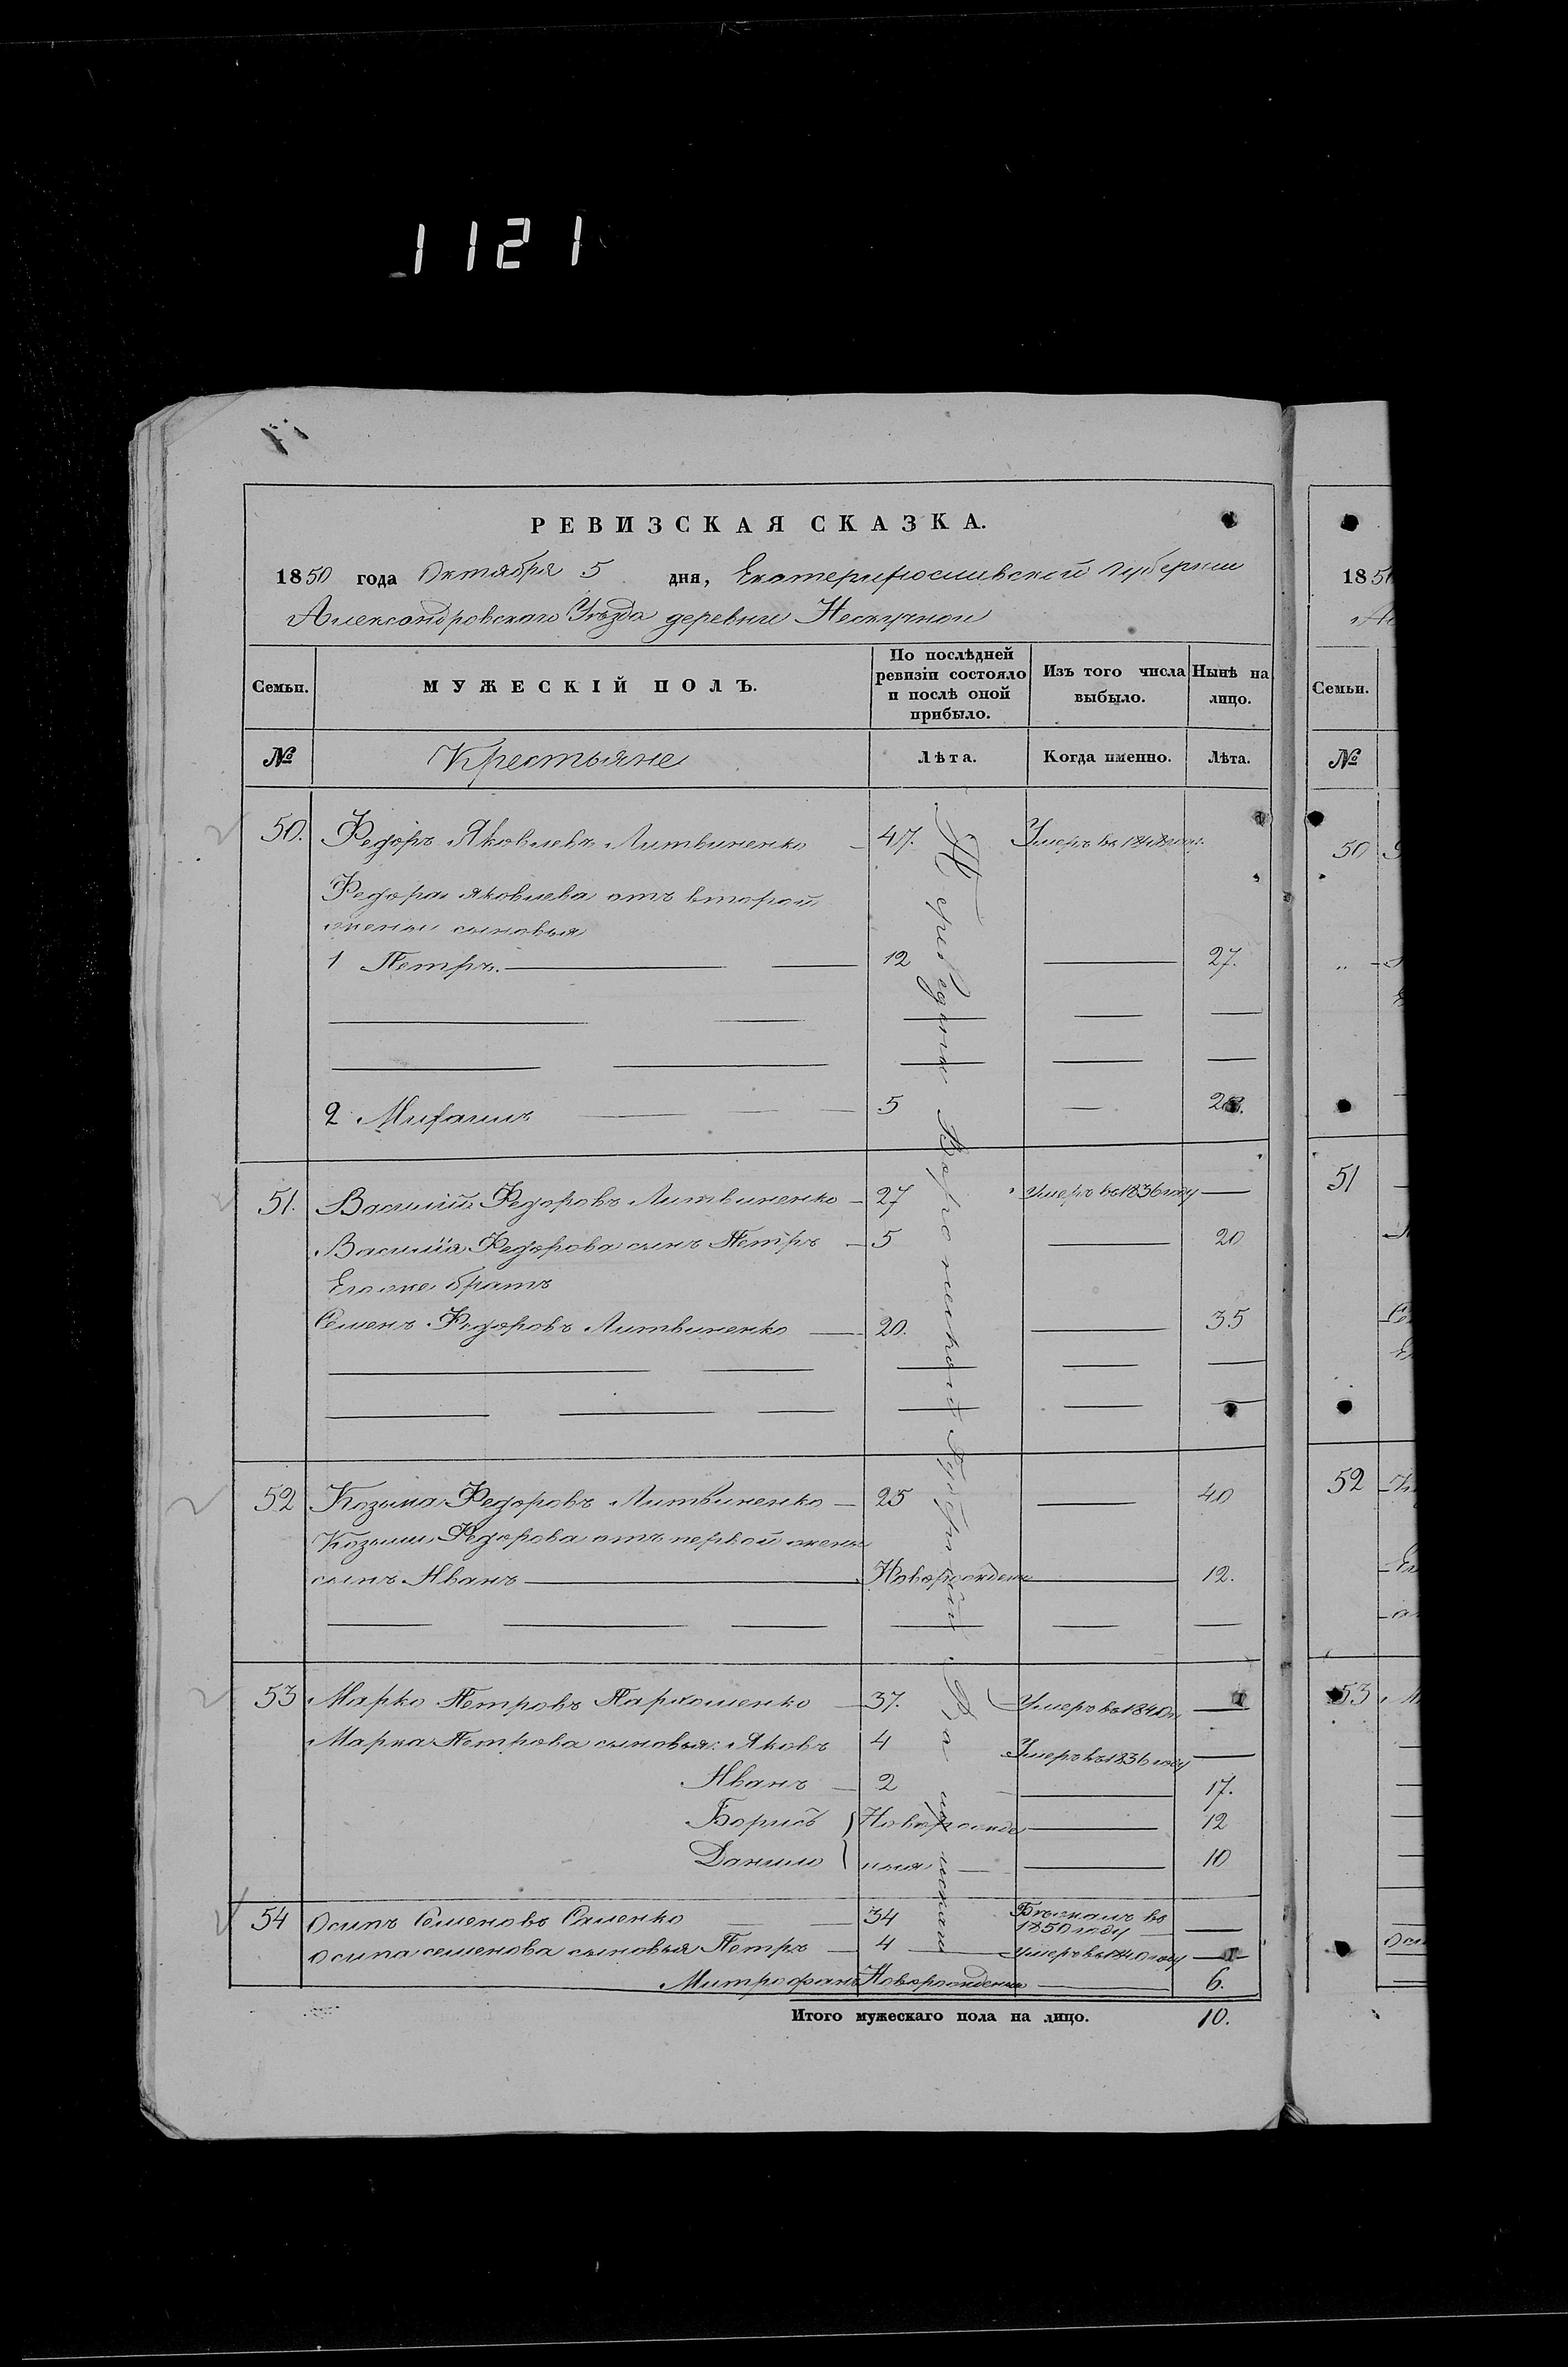 1121
РЕВИЗСКАЯ СКАЗКА.
1850 года Октября 5 дня, Екатеринославской Губернии
Александровскаго Уѣзда деревни Нескучной
Семьи. МУЖЕСКІЙ ПОЛЪ. По послѣдней ревизіи состояло и послѣ оной прибыло. Изъ того числа выбыло. Нынѣ на лицо.
№ Крестьяне Лѣта. Когда именно. Лѣта.
50. Федоръ Яковлевъ Литвиненко 47. Умеръ въ 1848
Федора Яковлева отъ второй
жены сыновья
1 Петръ. 12 27.
2 Михаилъ 5
51. Василій Федоровъ Литвиненко 27 Умеръ въ 1836 году
Василія Федорова сынъ Петръ 5 20
Его же братъ
Семенъ Федоровъ Литвиненко 20. 35
52 Козьма Федоровъ Литвиненко 25 40
Козьмы Федорова отъ первой жены
сынъ Иванъ Новорожденъ 12.
53 Марко Петровъ Пархоменко 37. Умеръ въ 1840
Марка Петрова сыновья: Яковъ 4 Умеръ въ 1836 году
Иванъ 2 17.
Борисъ Новорожде 12
Данило ные 10
54 Осипъ Семеновъ Саменко 34 Бежалъ въ 1850 году
Осипа семенова сыновья Петръ 4 умеръ въ 1840 году
Митрофанъ Новорожденъ 6.
Воронежской Губерніи
Итого мужескаго пола на лицо. 10.
1850
Семьи.
№
50
51
52
53